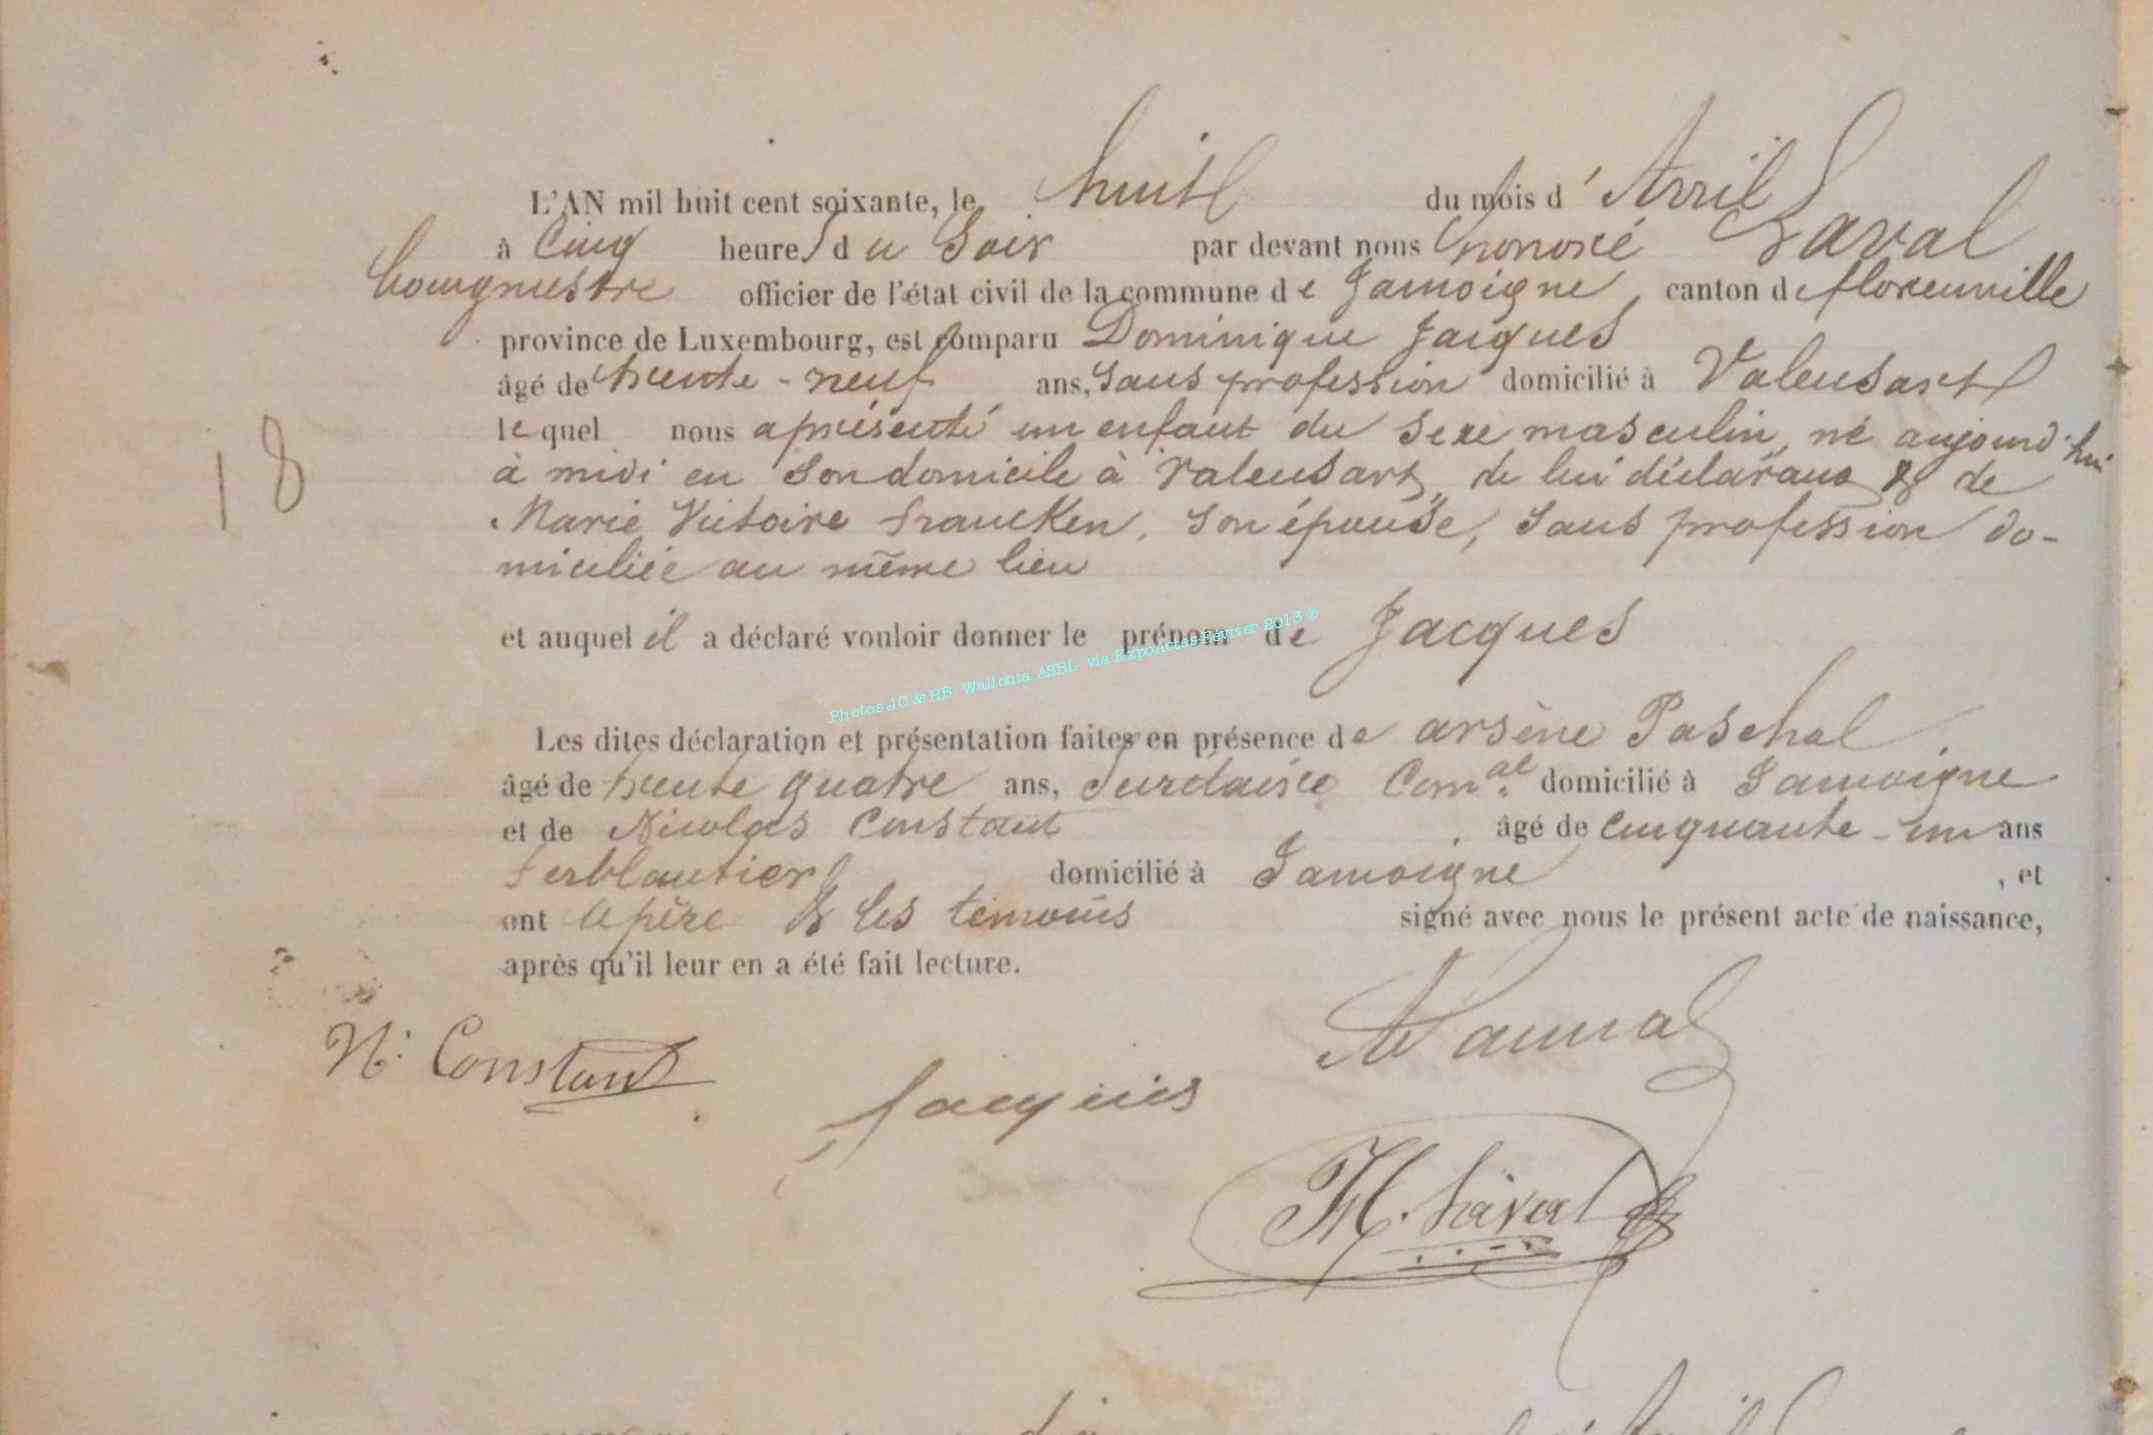 L'AN mil huit cent soixante, le huit du mois d' Avril
à Cinq heures du Soir par devant nous honoré Laval
bourgmestre officier de l'état civil de la commune de Jamoigne, canton de florenville
province de Luxembourg, est comparu Dominique Jacques
âgé de trente-neuf ans, Sans profession domicilié à Valensart
lequel nous a présenté un enfant du Sexe masculin, né aujourd'hui
à midi en Son domicile à Valensart, de lui déclarant & de
Marie Victoire francken, Son épouse, Sans profession do-
miciliée au même lieu
18
et auquel il a déclaré vouloir donner le prénom de Jacques
Photos JC & HB Wallonia ASBL via Exponctas Février 2013 ©
Les dites déclaration et présentation faites en présence de arsène Paschal,
âgé de trente quatre ans, Com.al domicilié à Jamoigne
et de Nicolas Constant âgé de cinquante-un ans
ferblantier domicilié à Jamoigne, et
ont le père & les témoins signé avec nous le présent acte de naissance,
après qu'il leur en a été fait lecture.
N. Constant
Jacques
H. Laval